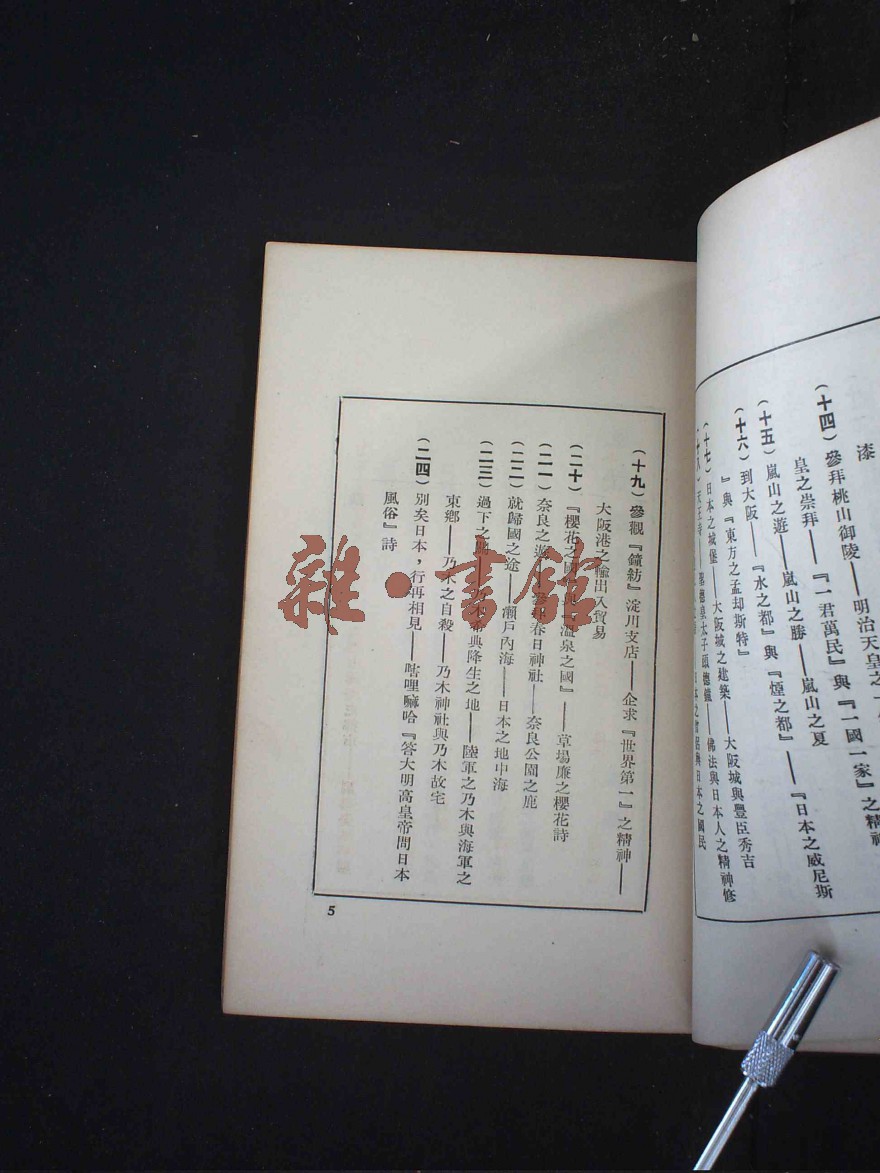 漆
（十四）參拜桃山御陵——明治天皇之
皇之崇拜——『一君萬民』與『一國一家』之精神
（十五）嵐山之遊——嵐山之勝——嵐山之夏
（十六）到大阪——『水之都』與『煙之都』——『日本之威尼斯
』與『東方之孟却斯特』
（十七）日本之城堡——大阪城之建築——大阪城與豐臣秀吉
（十九）參觀『鐘紡』淀川支店——企求『世界第一』之精神——
大阪港之輸出入貿易
（二十）『櫻花之國』與『溫泉之國』——草場廉之櫻花詩
（二一）奈良之遊——參拜春日神社——奈良公園之鹿
（二二）就歸國之途——瀨戶內海——日本之地中海
（二三）過下之關——乃木希典降生之地——陸軍之乃木與海軍之
東鄉——乃木之自殺——乃木神社與乃木故宅
（二四）別矣日本，行再相見——嗐哩嘛哈『答大明高皇帝問日本
風俗』詩
5
雜·書館